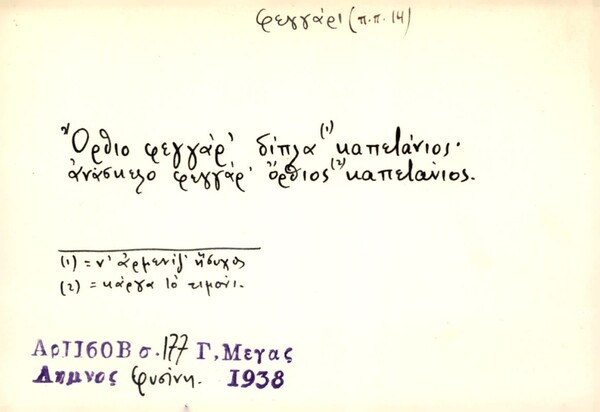 φεγγάρι (π.π. 14)
Ὄρθιο φεγγάρ' δίπλα (1) καπετάνιος·
ἀνάσκελο φεγγάρ' ὄρθιος (2) καπετάνιος.
(1) = ν' ἀρμενίζ' ἥσυχος
(2) = κάργα τὸ τιμόνι.
Αρ 1160Β σ. 177 Γ. Μεγας
Λημνος Φυσίνη. 1938